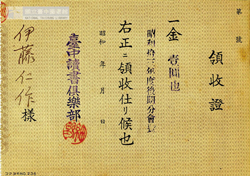 第　號
領收證
一金 壹圓也
昭和拾三年度後期分會費
右正ニ領收仕リ候也
昭和　年　月　日
臺中讀書俱樂部
伊藤仁作様